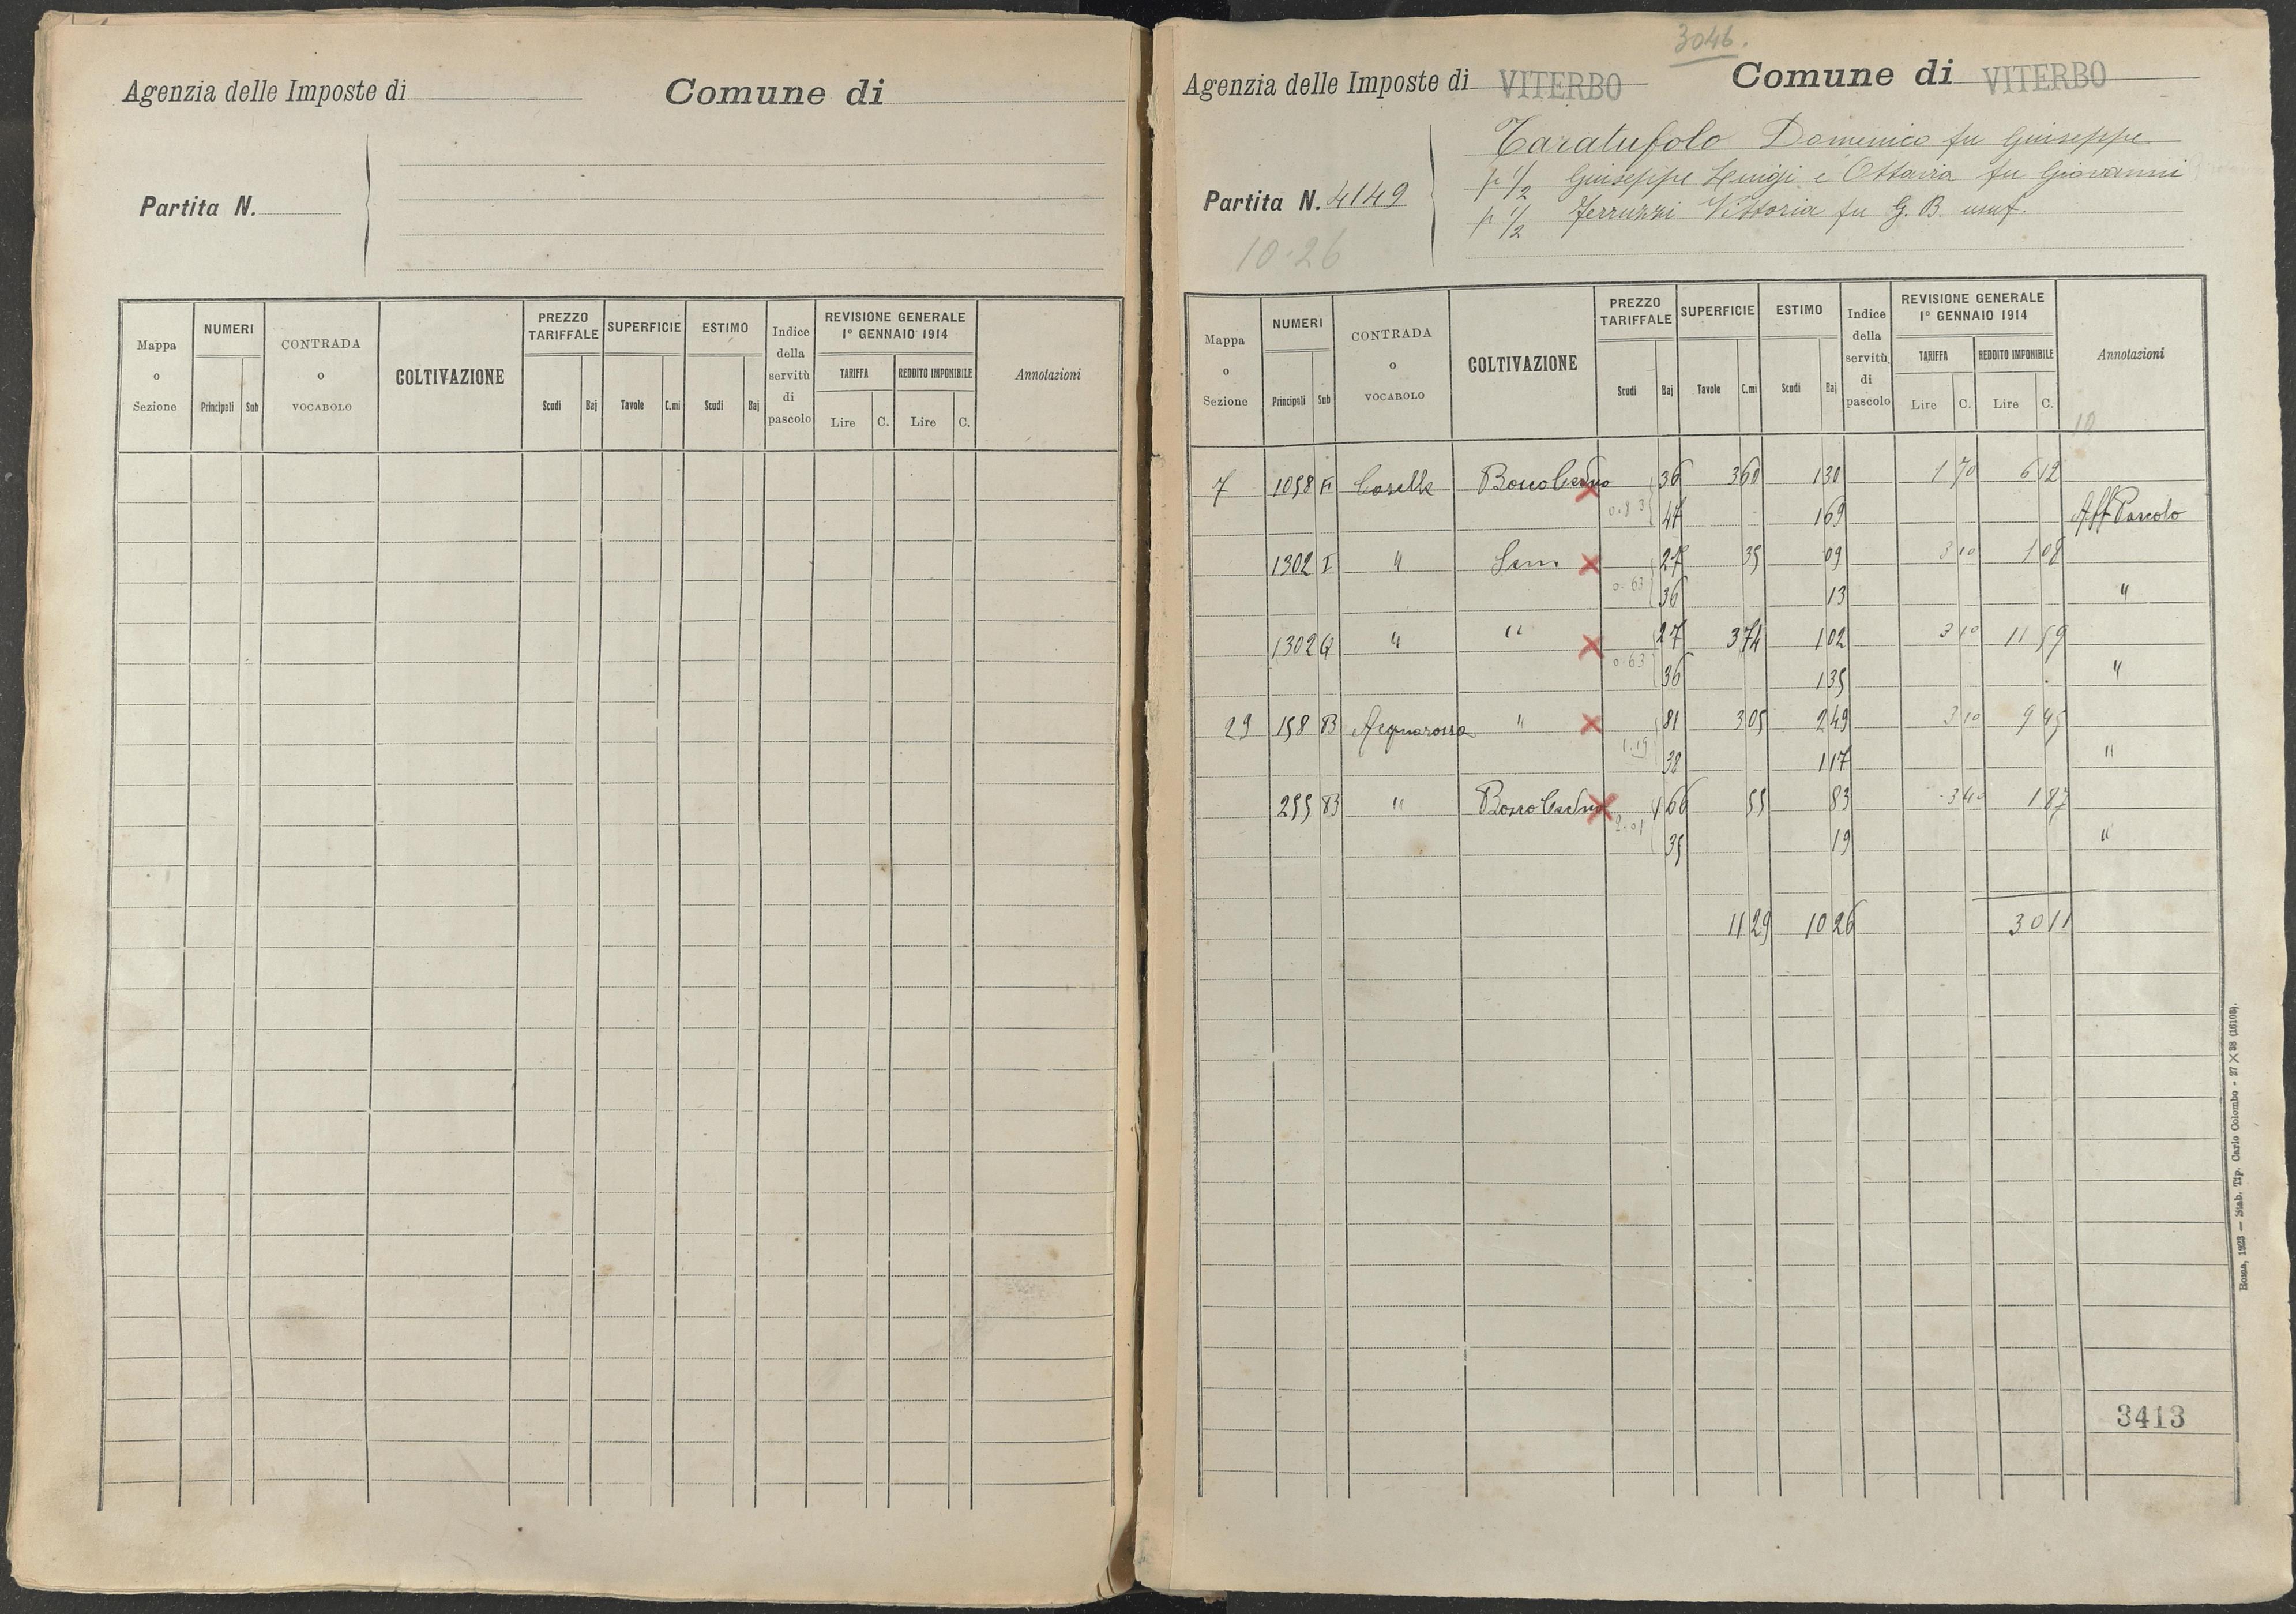 Agenzia delle Imposte di
Comune di
Partita N.
Mappa o Sezione
NUMERI
Principali Sub
CONTRADA o VOCABOLO
COLTIVAZIONE
PREZZO TARIFFALE
Scudi Baj
SUPERFICIE
Tavole C.mi
ESTIMO
Scudi Baj
Indice della servitù di pascolo
REVISIONE GENERALE
1° GENNAIO 1914
TARIFFA
Lire C.
REDDITO IMPONIBILE
Lire C.
Annotazioni
3046.
Agenzia delle Imposte di VITERBO
Comune di VITERBO
Taratufolo Domenico fu Giuseppe
p 1/2 Giuseppe Luigi e Ottavia fu Giovanni
Partita N. 4149
p 1/2 Ferruzzi Vittoria fu G. B. usuf.
10.26
Mappa o Sezione
NUMERI
Principali Sub
CONTRADA o VOCABOLO
COLTIVAZIONE
PREZZO TARIFFALE
Scudi Baj
SUPERFICIE
Tavole C.mi
ESTIMO
Scudi Baj
Indice della servitù di pascolo
REVISIONE GENERALE
1° GENNAIO 1914
TARIFFA
Lire C.
REDDITO IMPONIBILE
Lire C.
Annotazioni
10
7 1058 Caselle 36 3 60 1 30 1 70 6 12
0.83 47 1 69 Aff Pascolo
1302 I " Sem. 27 35 09 3 10 1 08
0.63 36 13 "
1302 Q " " 27 3 74 1 02 3 10 11 59
0.63 36 1 35 "
29 158 B Acquarossa " 81 3 05 2 49 3 10 9 45
1.19 38 1 17 "
255 B " 1 66 55 83 3 40 1 87
2.01 35 19 "
11 29 10 26 30 11
3413
Roma, 1923 — Stab. Tip. Carlo Colombo - 27 X 38 (16108).